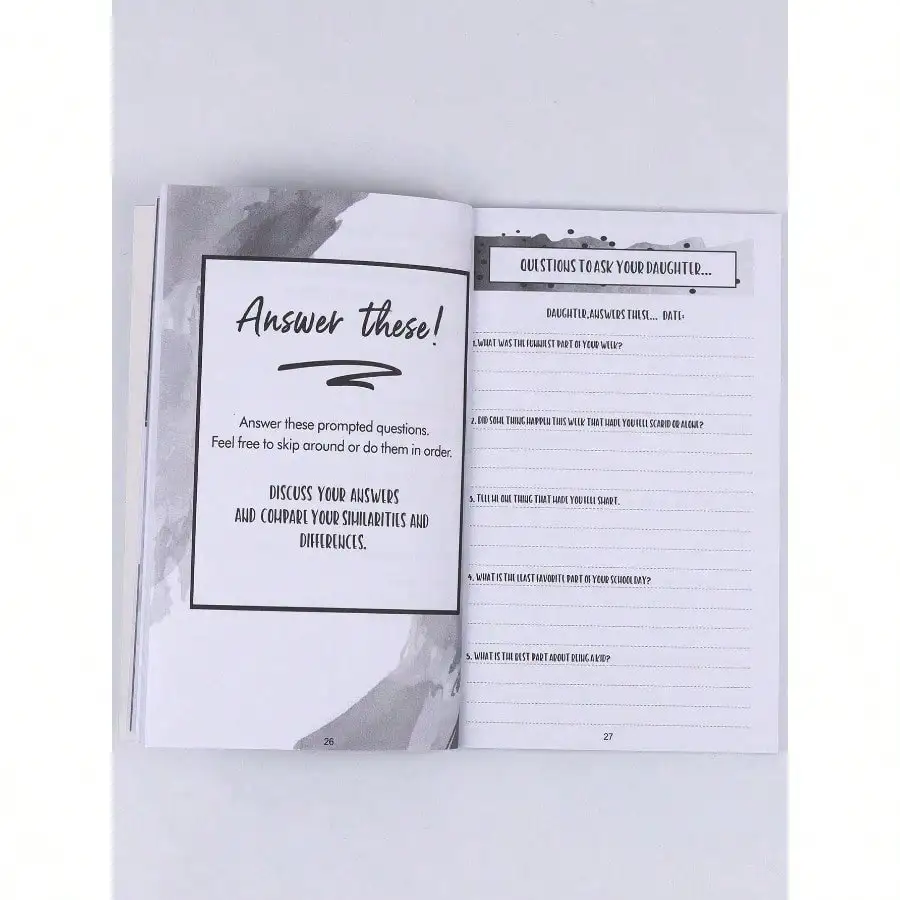 Answer these!
Answer these prompted questions.
Feel free to skip around or do them in order.
DISCUSS YOUR ANSWERS
AND COMPARE YOUR SIMILARITIES AND
DIFFERENCES.
26
QUESTIONS TO ASK YOUR DAUGHTER...
DAUGHTER, ANSWERS THESE... DATE:
1. WHAT WAS THE FUNNIEST PART OF YOUR WEEK?
2. DID SOME THING HAPPEN THIS WEEK THAT MADE YOU FEEL SCARED OR ALONE?
3. TELL ME ONE THING THAT MADE YOU FEEL SMART.
4. WHAT IS THE LEAST FAVORITE PART OF YOUR SCHOOL DAY?
5. WHAT IS THE BEST PART ABOUT BEING A KID?
27